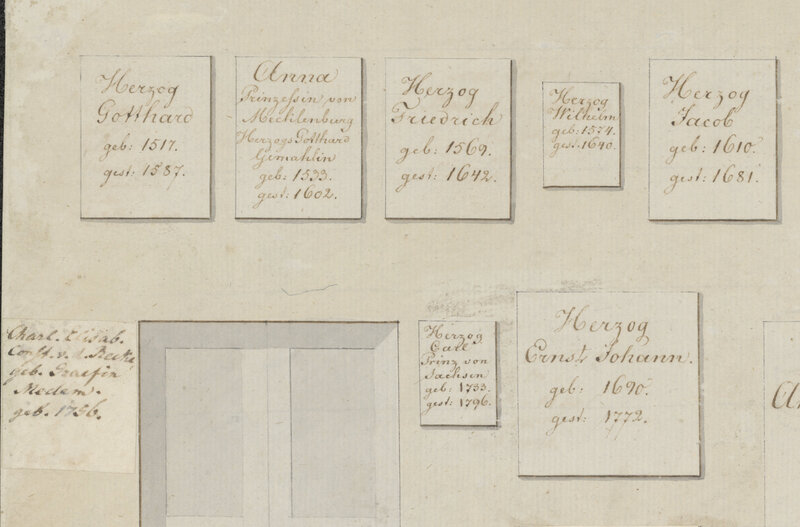 Herzog
Gotthard
geb: 1517.
gest: 1587.
Anna
Prinzessin von
Mecklenburg
Herzogs Gotthard
Gemahlin
geb: 1533.
gest: 1602.
Herzog
Friedrich
geb: 1569.
gest: 1642.
Herzog
Wilhelm
geb: 1574.
gest: 1640.
Herzog
Jacob
geb: 1610.
gest: 1681.
Charl. Elisab.
Const. v. d. Recke
geb. Graefin
Medem.
geb. 1756.
Herzog
Carl
Prinz von
Sachsen
geb: 1733.
gest: 1796.
Herzog
Ernst Johann.
geb: 1690.
gest: 1772.